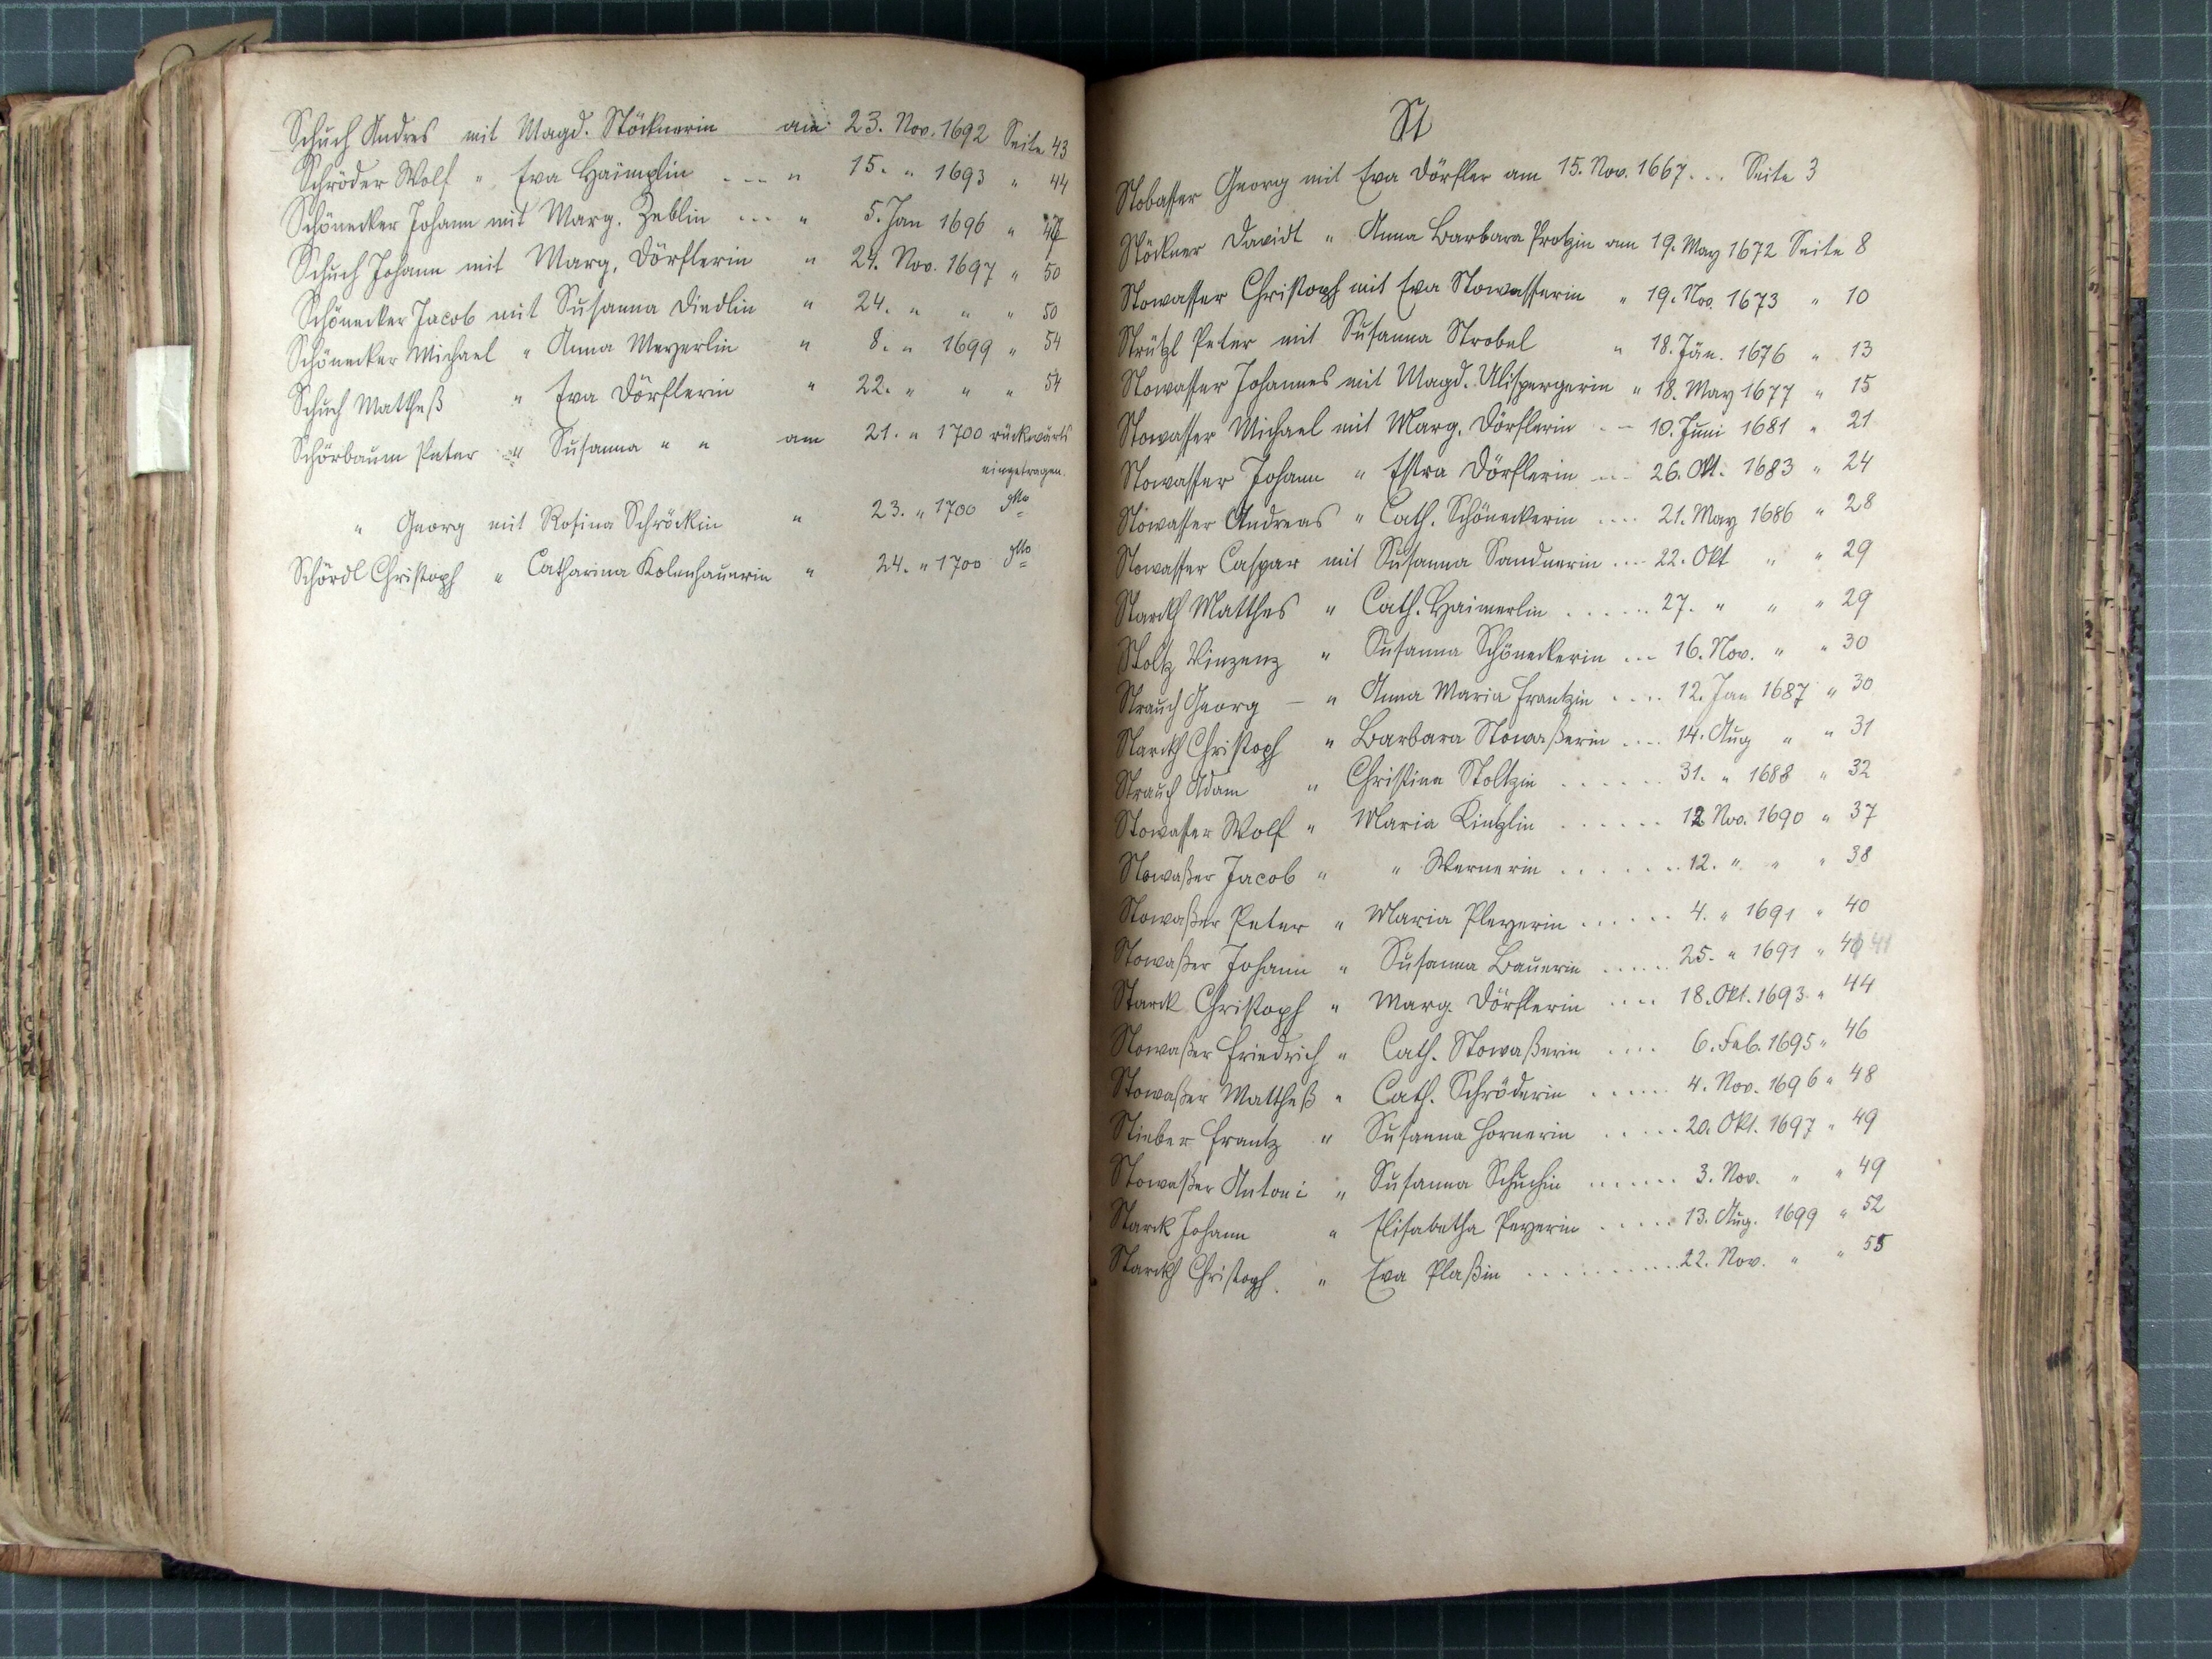 Schuch Andres mit Magd. Stöcknerin am 23. Nov. 1692 Seite 43
Schröder Wolf " Eva Haimplin --- " 15. " 1693 " 44
Schönecker Johann mit Marg. Zeblin --- " 5. Jan 1696 "
Schuch Johann mit Marg. Dörflerin " 24. Nov. 1697 " 50
Schönecker Jacob mit Susanna Diedlin " 24. " " " 50
Schönecker Michael " Anna Meyerlin " 8. " 1699 " 54
Schuch Mattheß " Eva Dörflerin " 22. " " " 54
Schörbaum Peter " Susanna " " am 21. " 1700 rückwärts
eingetragen.
" Georg mit Rosina Schröckin " 23. " 1700 dtto
Schördl Christoph " Catharina Kolenhauerin " 24. " 1700 dtto
St
Stobasser Georg mit Eva Dörfler am 15. Nov. 1667... Seite 3
Stöckner Davidt " Anna Barbara Protzin am 19. May 1672 Seite 8
Stowasser Christoph mit Eva Stowasserin " 19. Nov. 1673 " 10
Strützl Peter mit Susanna Strobel " 18. Jän. 1676 " 13
Stowasser Johannes mit Magd. Ulispergerin " 18. May 1677 " 15
Stowasser Michael mit Marg. Dörflerin -- 10. Juni 1681 " 21
Stowasser Johann " Estra Dörflerin --- 26. Okt. 1683 " 24
Stowasser Andreas " Cath. Schöneckerin .... 21. May 1686 " 28
Stowasser Caspar mit Susanna Sandnerin .... 22. Okt " " 29
Starckh Matthes " Cath. Haimerlin ...... 27. " " " 29
Stoltz Vinzenz " Susanna Schöneckerin ... 16. Nov. " " 30
Strauch Georg - " Anna Maria Frantzin .... 12. Jan 1687 " 30
Starckh Christoph " Barbara Stowaßerin .... 14. Aug " " 31
Strauch Adam " Christina Stoltzin ...... 31. " 1688 " 32
Stowasser Wolf " Maria Kintzlin ...... 12 Nov. 1690 " 37
Stowaßer Jacob " " Wernerin ....... 12. " " " 38
Stowaßer Peter " Maria Pleyerin ...... 4. " 1691 " 40
Stowaßer Johann " Susanna Bauerin ..... 25. " 1691 " 41
Starck Christoph " Marg. Dörflerin .... 18. Okt. 1693 " 44
Stowaßer Friedrich " Cath. Stowaßerin .... 6. Feb. 1695 " 46
Stowaßer Mattheß " Cath. Schröderin ..... 4. Nov. 1696 " 48
Stieber Frantz " Susanna Hornerin ..... 20. Okt. 1697 " 49
Stowaßer Antoni " Susanna Schuchin ...... 3. Nov. " " 49
Starck Johann " Elisabetha Peyerin ..... 13. Aug. 1699 " 52
Starckh Christoph. " Eva Plaßin .......... 22. Nov. " " 55